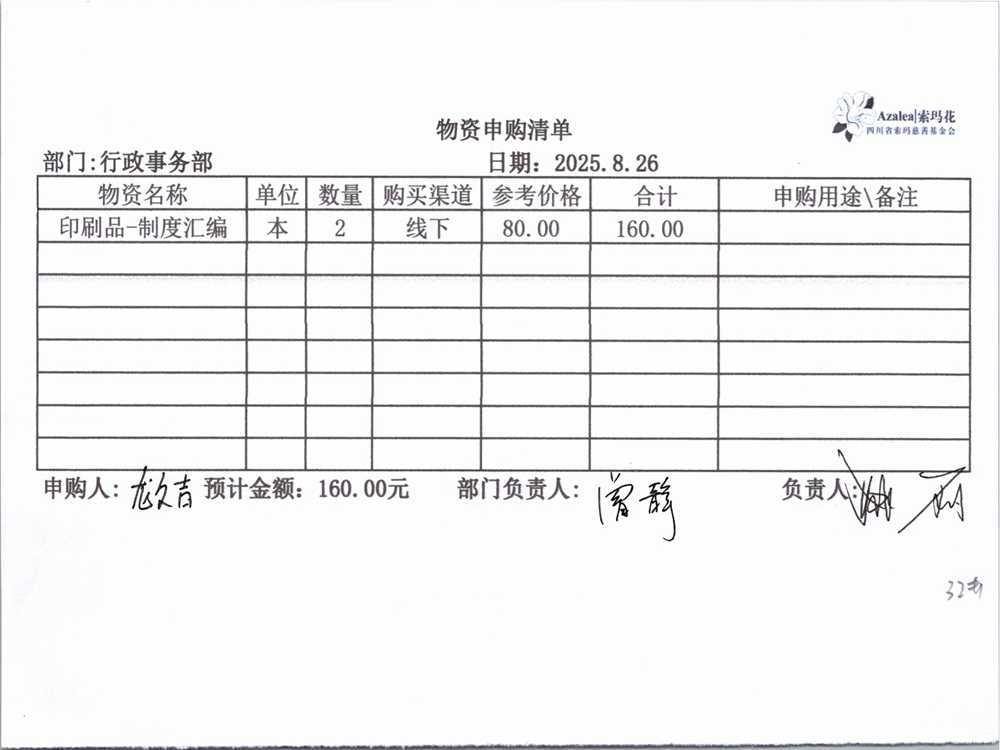 Azalea|索玛花
四川省索玛慈善基金会
物资申购清单
部门:行政事务部 日期：2025.8.26
物资名称 单位 数量 购买渠道 参考价格 合计 申购用途\备注
印刷品-制度汇编 本 2 线下 80.00 160.00
申购人: 龙文吉 预计金额：160.00元 部门负责人: 曾静 负责人: